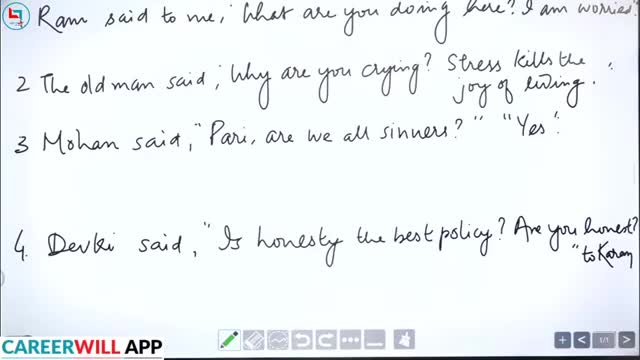 Ram said to me, "What are you doing here? I am worried"
2 The old man said, "Why are you crying? Stress kills the
joy of living."
3 Mohan said, "Pari, are we all sinners?" "Yes".
4. Devki said, "Is honesty the best policy? Are you honest?
"to Karan
1/1
CAREERWILL APP